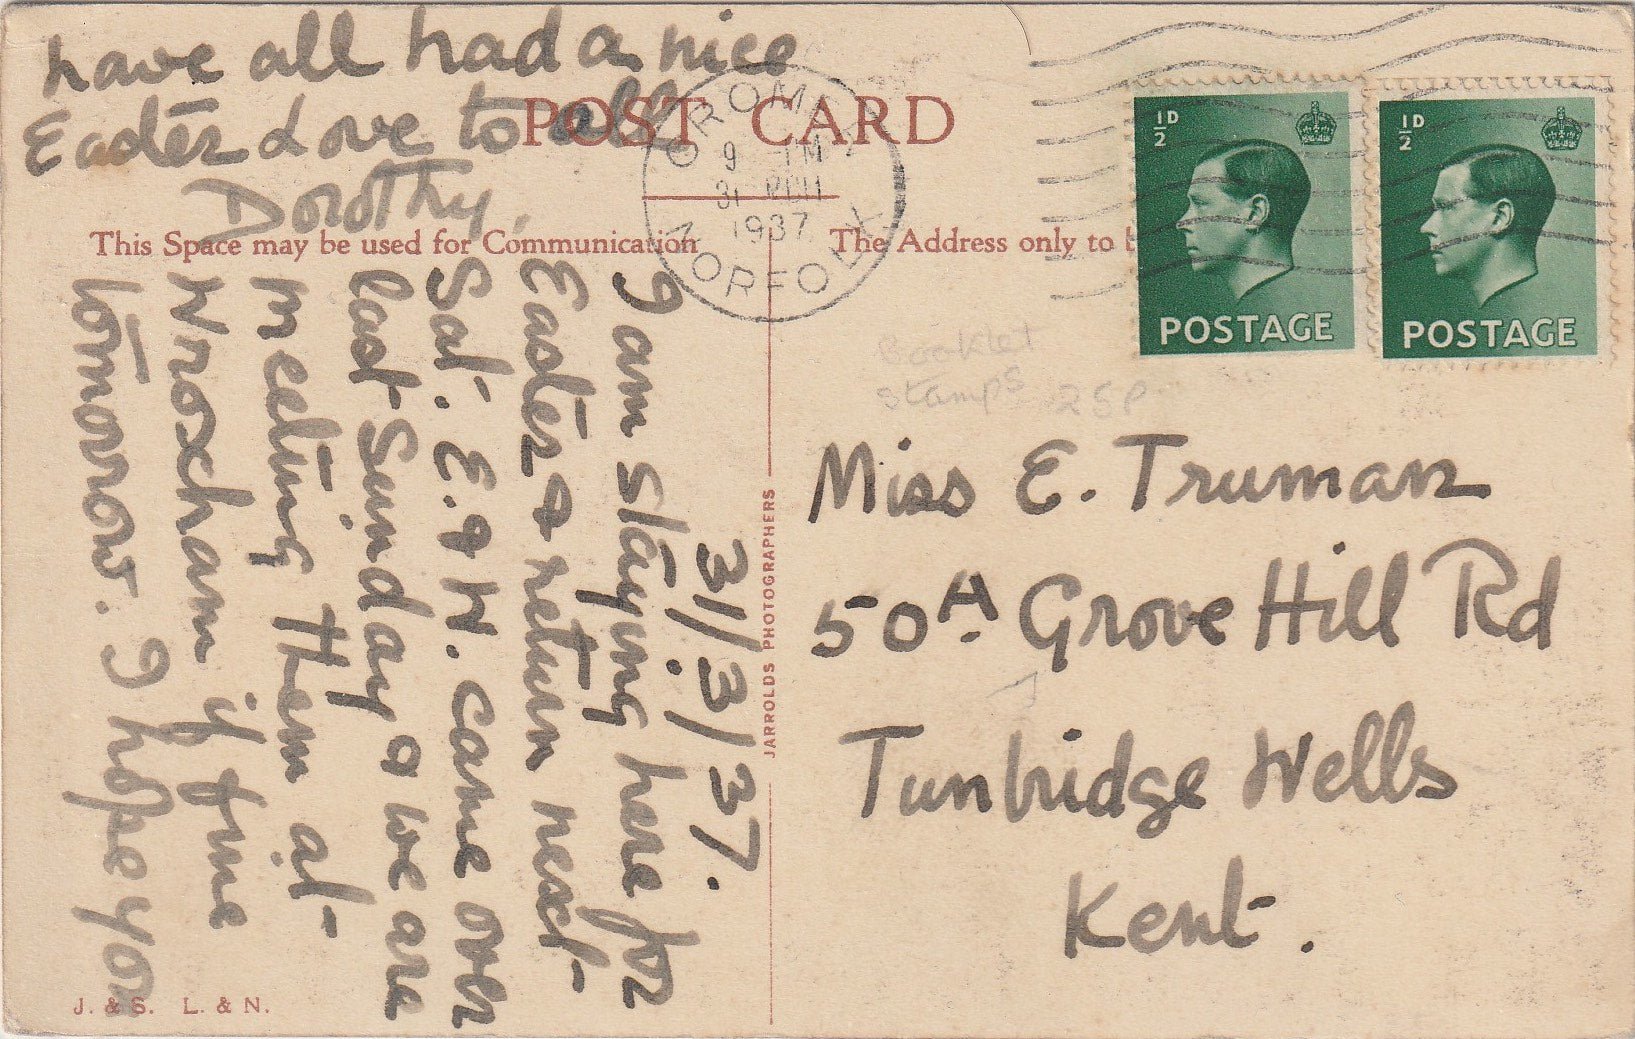 POST CARD
This Space may be used for Communication
The Address only to
CROMER
9 PM
31 MCH
1937
NORFOLK
½D
POSTAGE
½D
POSTAGE
Booklet
stamps 25p
31/3/37.
I am staying here for
Easter & return next
Sat. E. & W. came over
last Sunday & we are
meeting them at
Wroxham if fine
tomorrow. I hope you
have all had a nice
Easter Love to all
Dorothy.
Miss E. Truman
50A Grove Hill Rd
Tunbridge Wells
Kent.
JARROLDS PHOTOGRAPHERS
J. & S. L. & N.